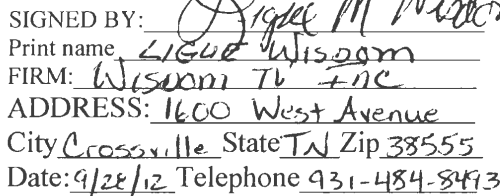 SIGNED BY:
Print name LIGUE Wisdom
FIRM: Wisdom TV Inc
ADDRESS: 1600 West Avenue
City Crossville State TN Zip 38555
Date: 9/28/12 Telephone 931-484-8493